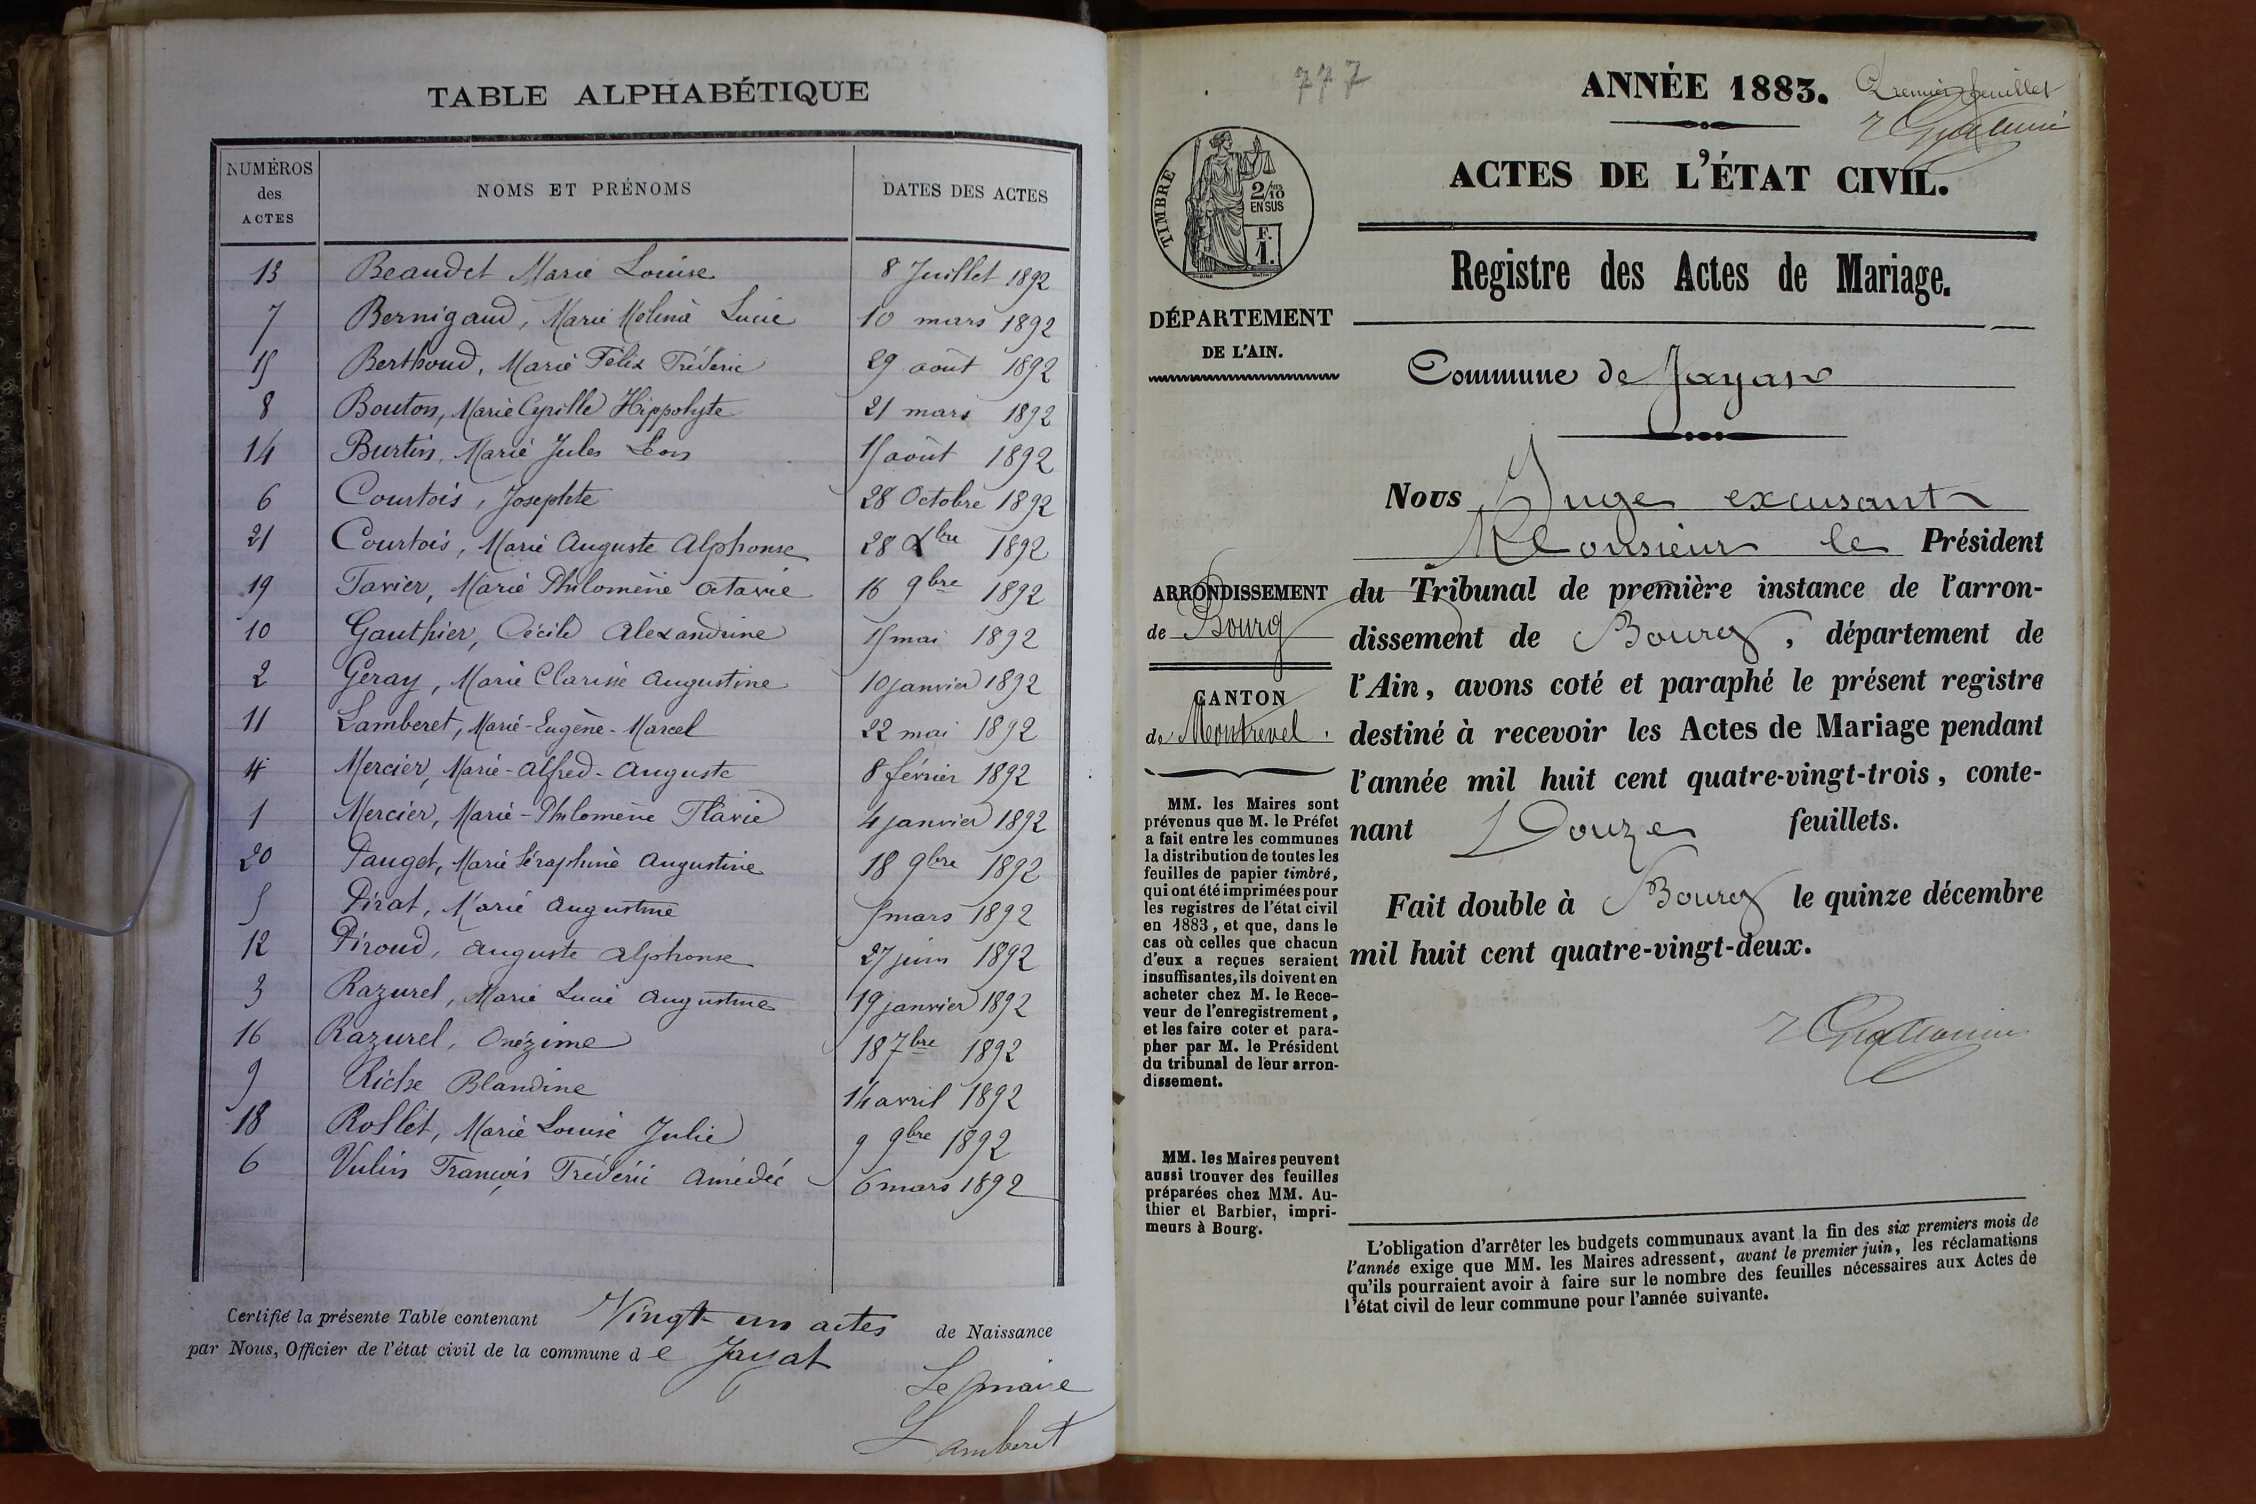 TABLE ALPHABÉTIQUE
NUMÉROS des ACTES NOMS ET PRÉNOMS DATES DES ACTES
13 Beaudet Marie Louise 8 Juillet 1892
7 Bernigaud, Marie Mélina Lucie 10 mars 1892
15 Berthoud, Marie Félix Fréderic 29 août 1892
8 Bouton, Marie Cyrille Hippolyte 21 mars 1892
14 Burtin, Marie Jules Léon 15 août 1892
6 Courtois, Josephte 28 Octobre 1892
21 Courtois, Marie Auguste Alphonse 28 Xbre 1892
19 Favier, Marie Philomène Octavie 16 9bre 1892
10 Gauthier, Cécile Alexandrine 15 mai 1892
2 Geray, Marie Clarisse Augustine 10 janvier 1892
11 Lamberet, Marie-Eugène-Marcel 22 mai 1892
4 Mercier, Marie-Alfred-Auguste 8 février 1892
1 Mercier, Marie-Philomène Flavie 4 janvier 1892
20 Pauget, Marie Séraphine Augustine 18 9bre 1892
5 Pirat, Marie Augustine 5 mars 1892
12 Piroud, Auguste Alphonse 27 juin 1892
3 Razurel, Marie Lucie Augustine 19 janvier 1892
16 Razurel, Onézime 18 7bre 1892
9 Riche Blandine 14 avril 1892
18 Rollet, Marie Louise Julie 9 9bre 1892
6 Vulin François Fréderic Amédée 6 mars 1892
Certifié la présente Table contenant Vingt-un actes de Naissance
par Nous, Officier de l'état civil de la commune de Jayat
Le Maire
Lamberet
777
ANNÉE 1883.
Premier feuillet
ACTES DE L'ÉTAT CIVIL.
TIMBRE
2/10 EN SUS
F. 1.
Registre des Actes de Mariage.
DÉPARTEMENT
DE L'AIN.
Commune de Jayat
Nous Juge excusant
Monsieur le Président
du Tribunal de première instance de l'arron-
dissement de Bourg, département de
l'Ain, avons coté et paraphé le présent registre
destiné à recevoir les Actes de Mariage pendant
l'année mil huit cent quatre-vingt-trois, conte-
nant Douze feuillets.
Fait double à Bourg le quinze décembre
mil huit cent quatre-vingt-deux.
ARRONDISSEMENT
de Bourg
CANTON
de Montrevel.
MM. les Maires sont
prévenus que M. le Préfet
a fait entre les communes
la distribution de toutes les
feuilles de papier timbré,
qui ont été imprimées pour
les registres de l'état civil
en 1883, et que, dans le
cas où celles que chacun
d'eux a reçues seraient
insuffisantes, ils doivent en
acheter chez M. le Rece-
veur de l'enregistrement,
et les faire coter et para-
pher par M. le Président
du tribunal de leur arron-
dissement.
MM. les Maires peuvent
aussi trouver des feuilles
préparées chez MM. Au-
thier et Barbier, impri-
meurs à Bourg.
L'obligation d'arrêter les budgets communaux avant la fin des six premiers mois de
l'année exige que MM. les Maires adressent, avant le premier juin, les réclamations
qu'ils pourraient avoir à faire sur le nombre des feuilles nécessaires aux Actes de
l'état civil de leur commune pour l'année suivante.